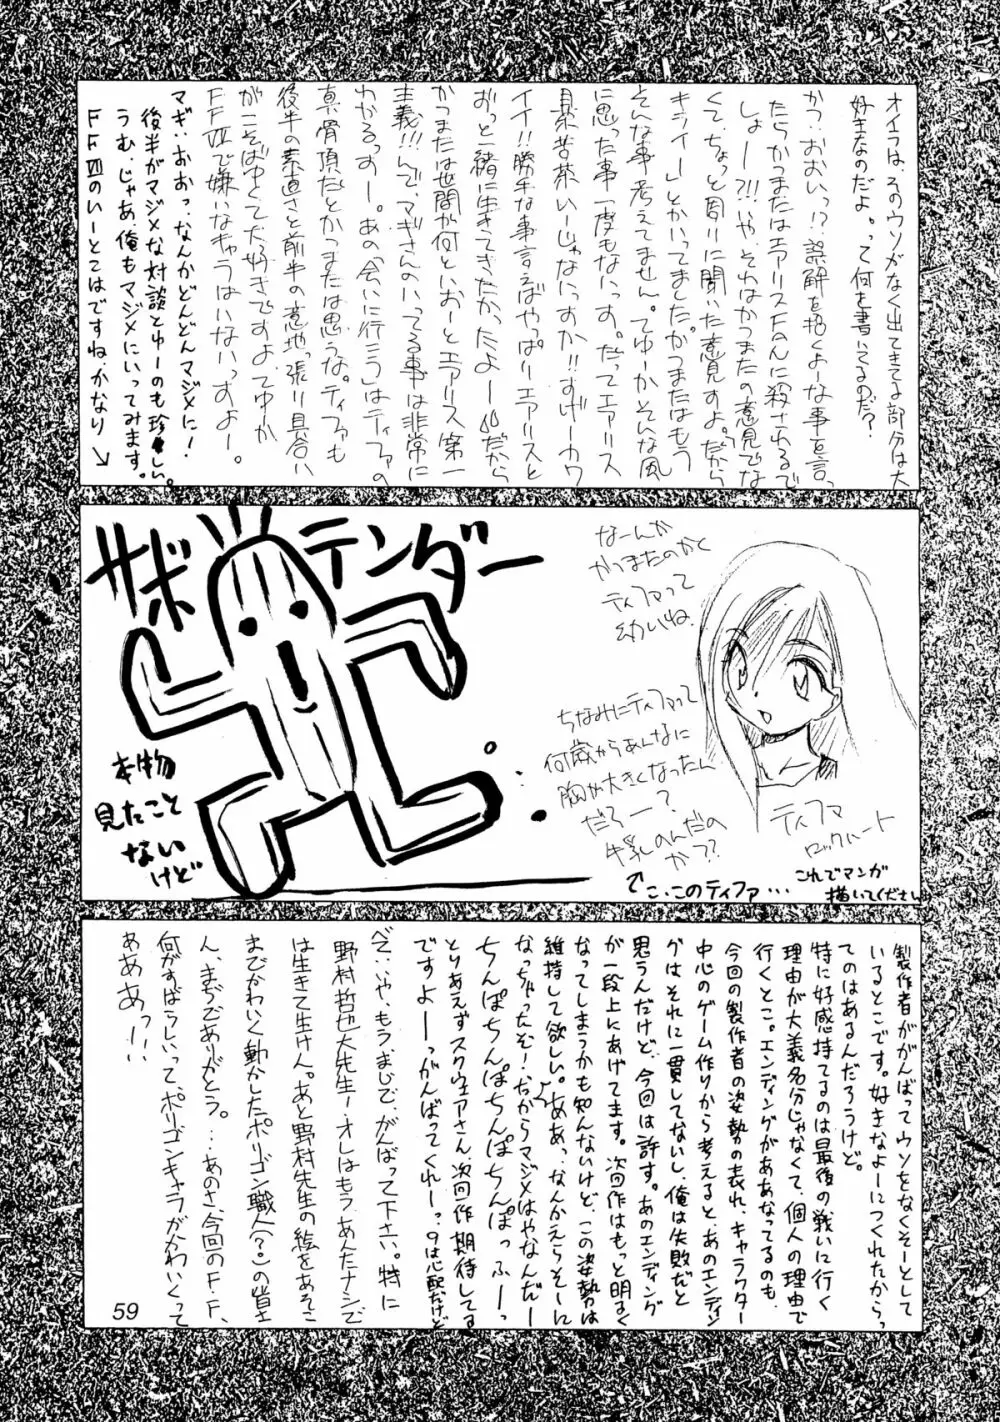 オイラは、そのウソがなく出てきてよ部分は大
好きなのだよ。って何を書いてるのだ?
かつ:おおいっ!?誤解を招くよーな事を言っ
たらかつまたはエアリスFanに殺されるで
しょー?!!いや、それはかつまたの意見でな
くて、ちょっと周りに聞いた意見ですよ。だから
キライー」とかいってましたが。かつまたはもう
そんな事考えてません。てゆーかそんな風
に思った事一度もないっす。だってエアリス
最茶苦茶いーじゃないっすか!!すげーカワ
イイ!!勝手な事言えばやっぱりエアリスと
ずっと一緒に生きてきたかったよー だから
かつまたは世間が何といおーとエアリス第一
主義!!!んで、マギさんのいってる事は非常に
わかるっすー。あの「会いに行こう」はティファの
真骨頂だとかつまたは思うな。ティファも
後半の素直さと前半の意地っ張り具合い
がこそばゆくて大好きですよ。てゆか
FFⅦで嫌いなキャラはいないっすよー。
マギ:おおっ、なんかどんどんマジメに!
後半がマジメな対談とゆーのも珍しい。
うむ、じゃあ俺もマジメにいってみます。
FFⅦのいーとこはですね、かなり→
サボテンダー
本物
見たこと
ないけど
なーんか
かつまたのかと
ティファって
幼いね。
ちなみにティファって
何歳からあんなに
胸が大きくなったん
だろー?
牛乳のんだの
か??
ティファ
ロックハート
こ、このティファ…
これでマンガ
描いてください
製作者ががんばってウソをなくそーとして
いるとこです。好きなよーにつくれたからっ
てのはあるんだろうけど。
特に好感持てるのは最後の戦いに行く
理由が大義名分じゃなくて、個人の理由で
行くとこ。エンディングがああなってるのも、
今回の製作者の姿勢の表れ、キャラクター
中心のゲーム作りから考えると、あのエンディン
グはそれに一貫してないし、俺は失敗だと
思うんだけど、今回は許す。あのエンディング
が一段上にあげてます。次回作はもっと明るく
なってしまうかも知んないけど、この姿勢は
維持して欲しい。ああっ、なんかえらそーに
なっちゃったぞ!だからマジメはやなんだー
ちんぽちんぽちんぽちんぽっ ふーっ
とりあえずスクウェアさん次回作期待してる
ですよーーっがんばってくれーっ。9は心配だけど
べ:いや、もう、まじで、がんばって下さい。特に
野村哲也大先生ーオレはもう、あんたナシで
は生きて生けん。あと野村先生の絵をあそこ
までかわいく動かしたポリゴン職人(?)の皆さ
ん、まぢであーりがとう。…あのさ、今回のF.F.
何がすばらしいって、ポリゴンキャラがかわいくって
あああっ!!!
59